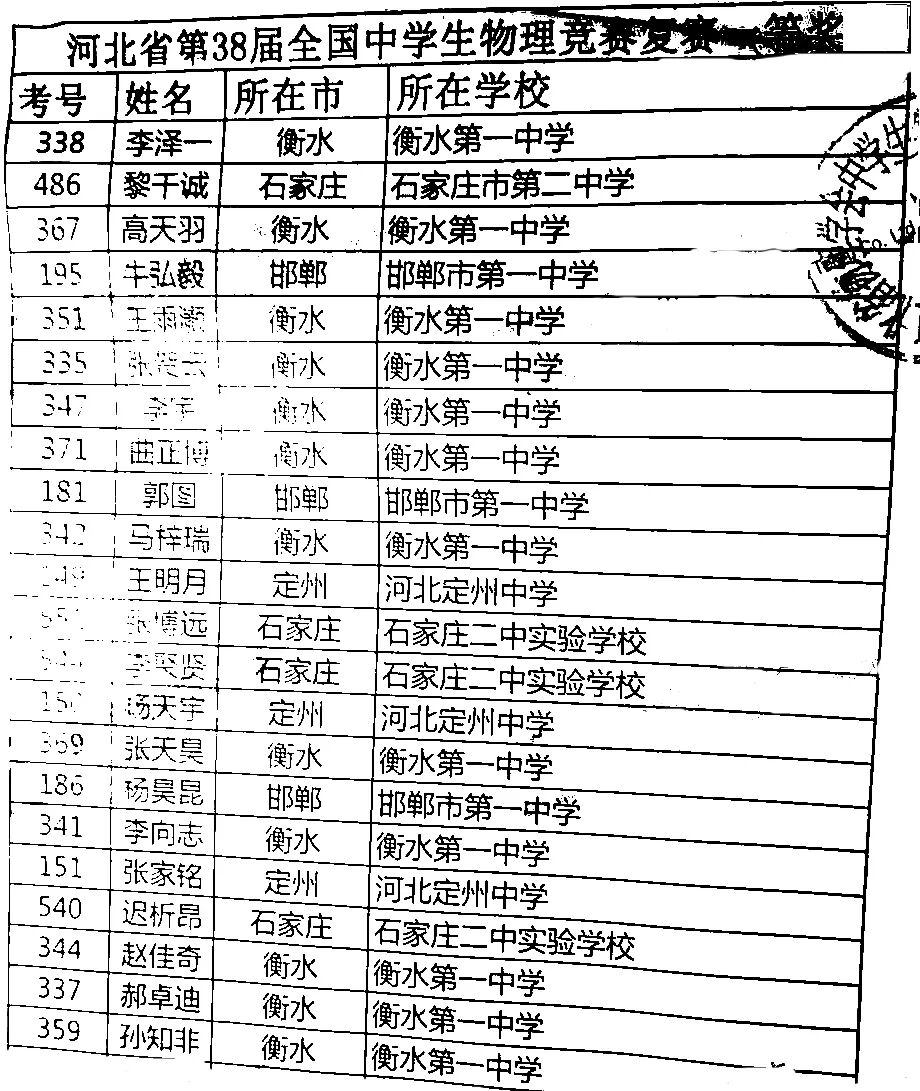 河北省第38届全国中学生物理竞赛复赛一等奖
考号 姓名 所在市 所在学校
338 李泽一 衡水 衡水第一中学
486 黎千诚 石家庄 石家庄市第二中学
367 高天羽 衡水 衡水第一中学
195 牛弘毅 邯郸 邯郸市第一中学
351 衡水 衡水第一中学
335 衡水 衡水第一中学
347 衡水 衡水第一中学
371 曲正博 衡水 衡水第一中学
181 郭图 邯郸 邯郸市第一中学
342 马梓瑞 衡水 衡水第一中学
王明月 定州 河北定州中学
张博远 石家庄 石家庄二中实验学校
石家庄 石家庄二中实验学校
杨天宇 定州 河北定州中学
369 张天昊 衡水 衡水第一中学
186 杨昊昆 邯郸 邯郸市第一中学
341 李向志 衡水 衡水第一中学
151 张家铭 定州 河北定州中学
540 迟析昂 石家庄 石家庄二中实验学校
344 赵佳奇 衡水 衡水第一中学
337 郝卓迪 衡水 衡水第一中学
359 孙知非 衡水 衡水第一中学